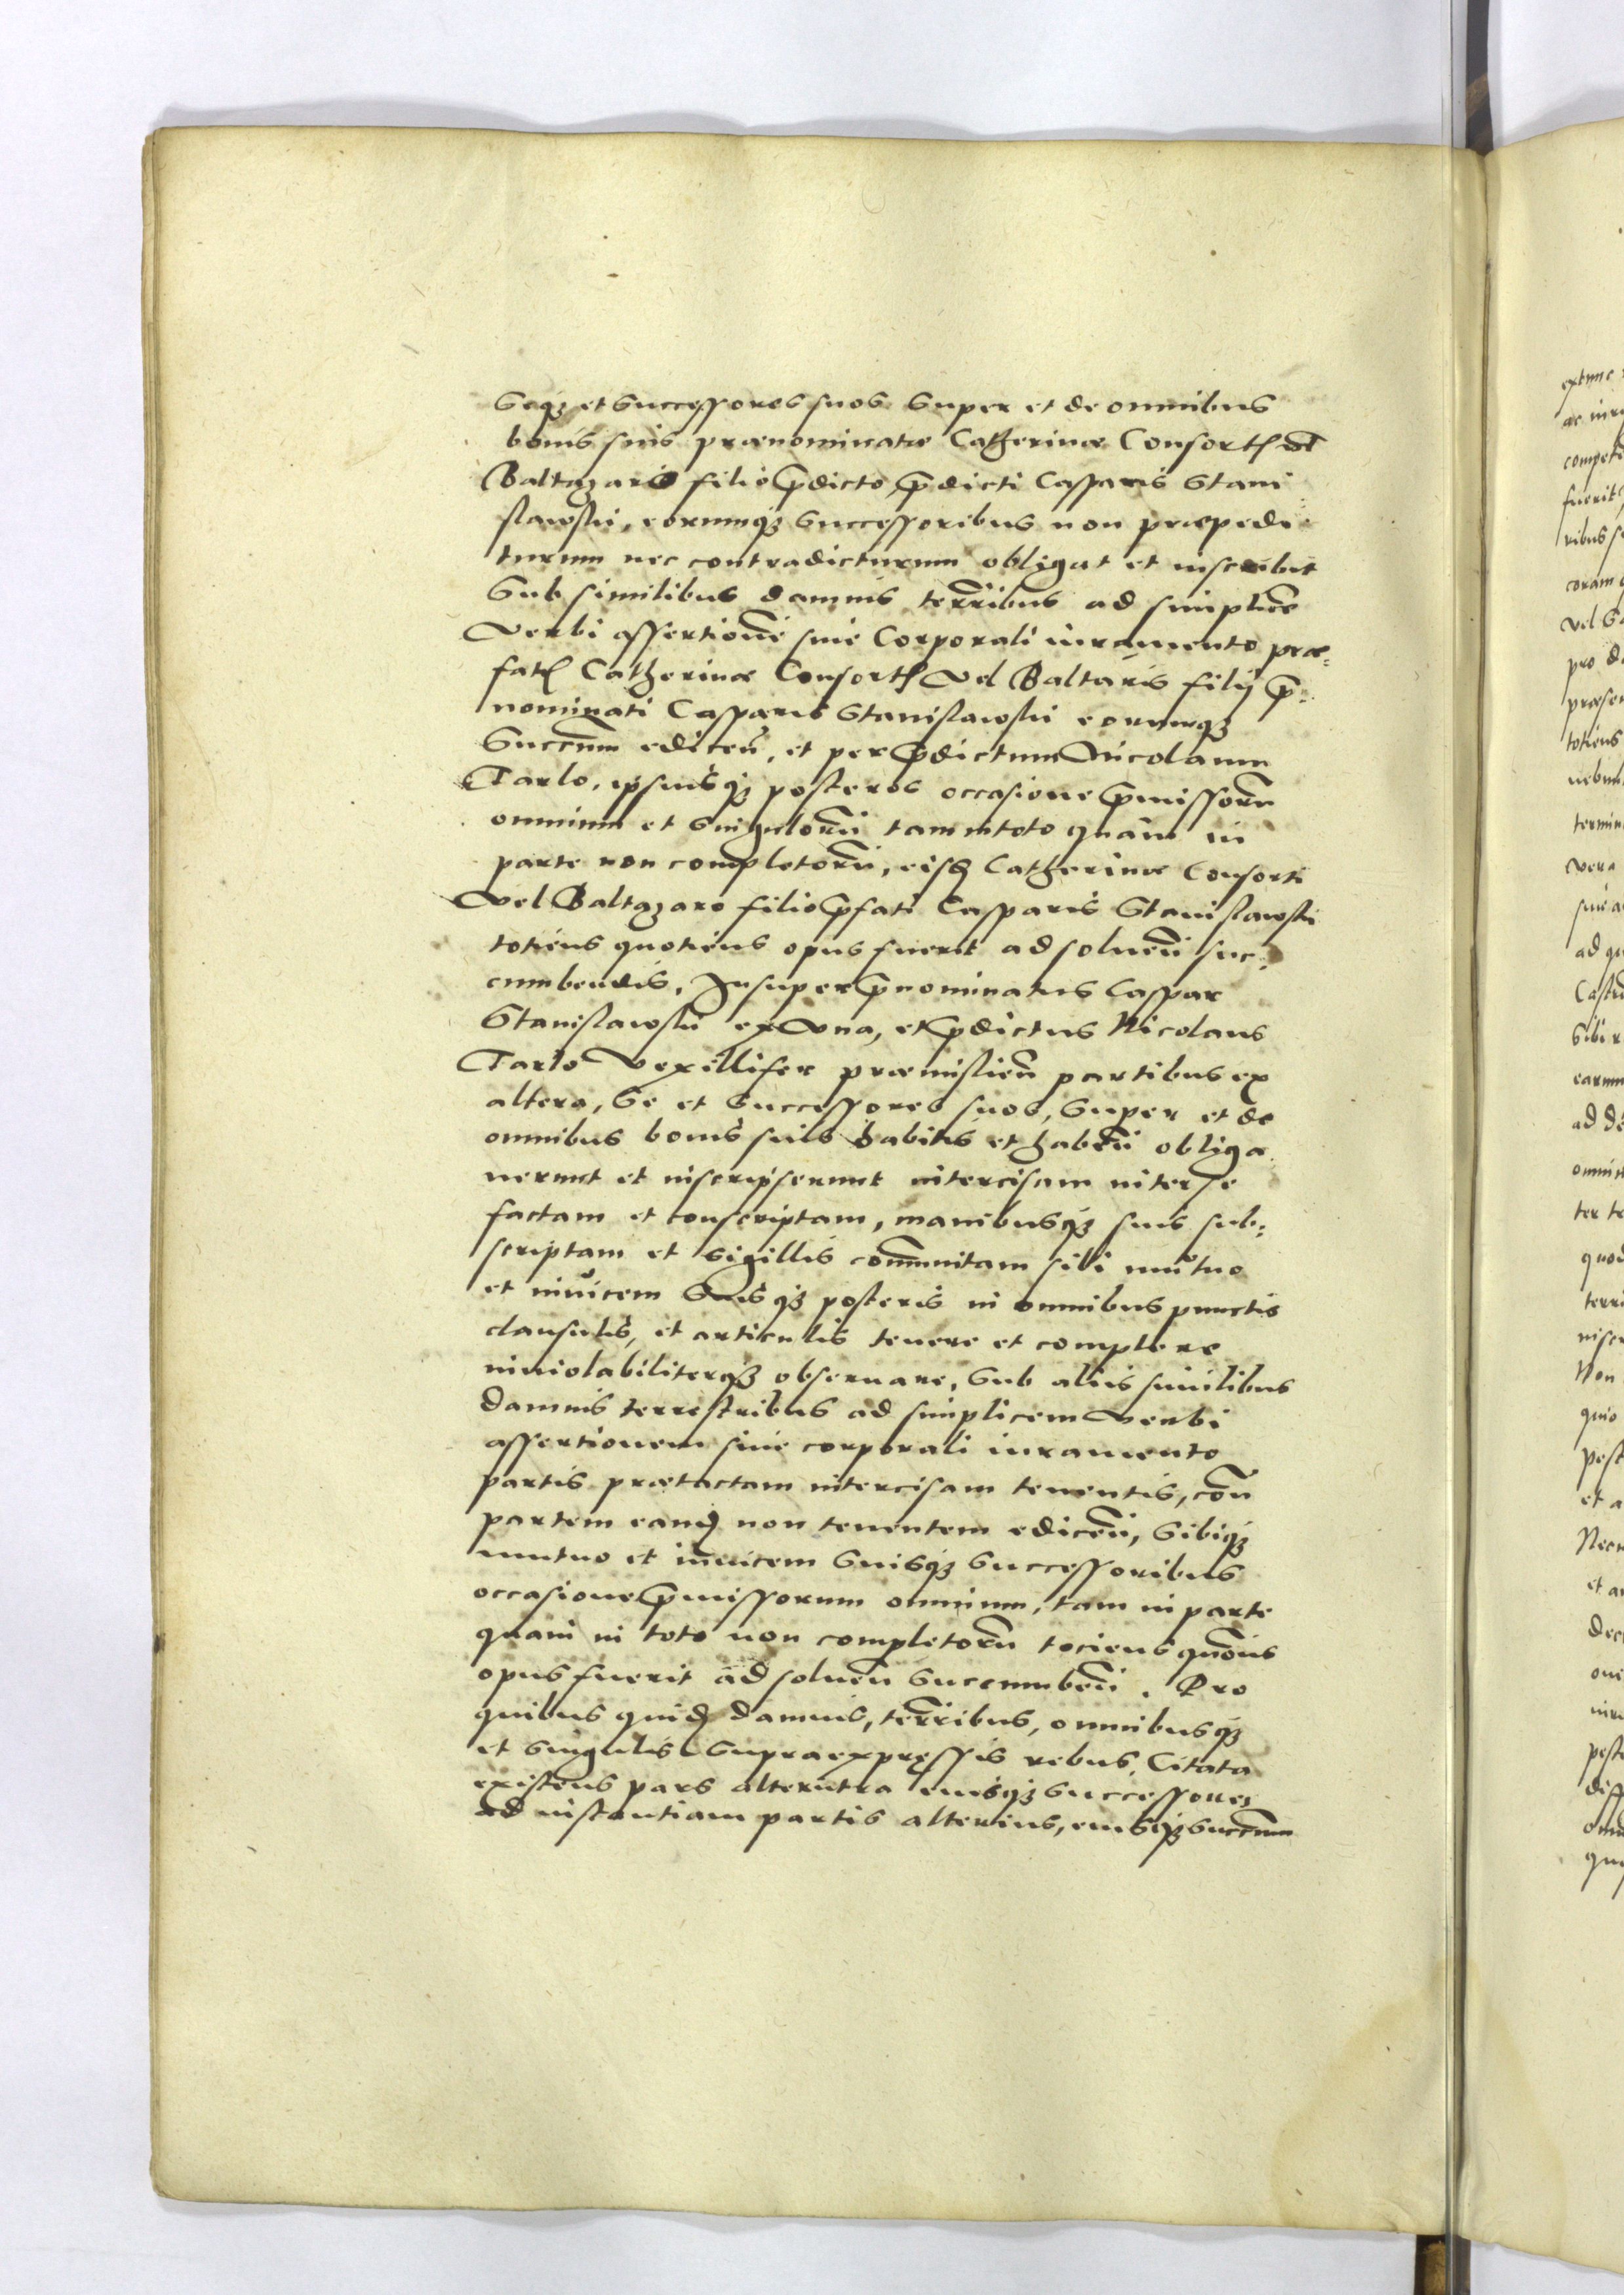 Seq3 et Successores suos Super et de omnibus
bonis suis prænominatæ Catherinæ Consorti et
Baltazaro filio p̄dicto, p̄dicti Casparis Stani
slawski, eorumq3 Successoribus non præpedi
turum nec contradicturum obligat et inscribit
Sub similibus damnis terr̄ribus ad simplicē
Verbi assertionē sine Corporali iuramento præ=
fatæ Catherinæ Consortis Vel Baltāris filij p̄=
nominati Casparis Stanislawski eorumq3
Succ̄rum edicen̄, et per p̄dictum Nicolaum
Tarlo, ipsiusq3 posteros occasione p̄missorū
omnium et Singulorū tam in toto quam in
parte non completorū, eisd Catherinæ Consorti
Vel Baltazaro filio p̄fati Casparis Stanislawski
totiens quotiens opus fuerit ad soluen̄ suc=
cumbendis, Insuper p̄nominatus Caspar
Stanislawski ex Vna, et p̄dictus Nicolaus
Tarlo Vexillifer præmislien̄ partibus ex
altera, Se et Successores suos, Super et de
omnibus bonis suis habitis et haben̄ obliga
uerunt et inscripserunt intercisam inter se
factam et conscriptam, manibusq3 suis sub=
scriptam et sigillis com̄munitam sibi mutuo
et inuicem Suisq3 posteris in omnibus punctis
clausulis, et articulis tenere et complere
inuiolabiliterq3 obseruare, Sub alijs similibus
damnis terrestribus ad simplicem Verbi
assertionem sine corporali iuramento
partis prætactam intercisam tenentis, con̄
partem eand non tenentem edicen̄, Sibiq3
mutuo et inuicem Suisq3 Successoribus
occasione p̄missorum omnium, tam in parte
quam in toto non completorū tociens quōns
opus fuerit ad soluen̄ Succumben̄. Pro
quibus quid damnis, terr̄ribus, omnibusq3
et Singulis Supraexpressis rebus, Citata
existens pars alterutra eiusq3 Successores
ad instantiam partis alterius, eiusq3 Succ̄rum